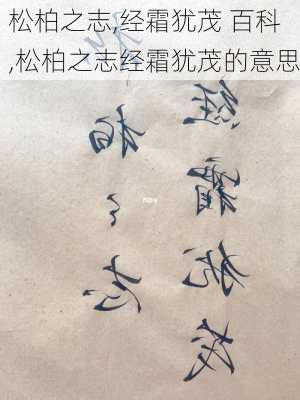 松柏之志,经霜犹茂 百科
,松柏之志经霜犹茂的意思
经霜犹茂
柏之志